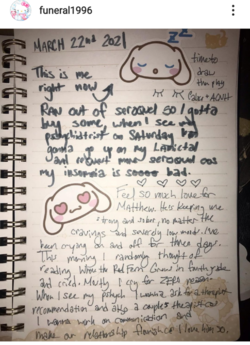 funeral1996
MARCH 22nd 2021
zz
time to
draw
then play
Color + ACNH
This is me
right now
RAN out of seroquel so I gotta
buy some when I see my
psychiatrist on Saturday. I'm
gonna go up on my Lamictal
and request more seroquel cos
my insomnia is soooo bad.
Feel so much love for
Matthew. He's keeping me
strong and sober, no matter the
cravings and low mood. I've
been crying on and off for three days.
This morning I randomly thought of
reading Where the Red Fern Grows in grade
and cried. Mostly I cry for ZERO reason.
When I see my psych I wanna ask for a therapist
recommendation and also a couples therapist cos
I wanna work on communication and
make our relationship flourish cos I love him so.